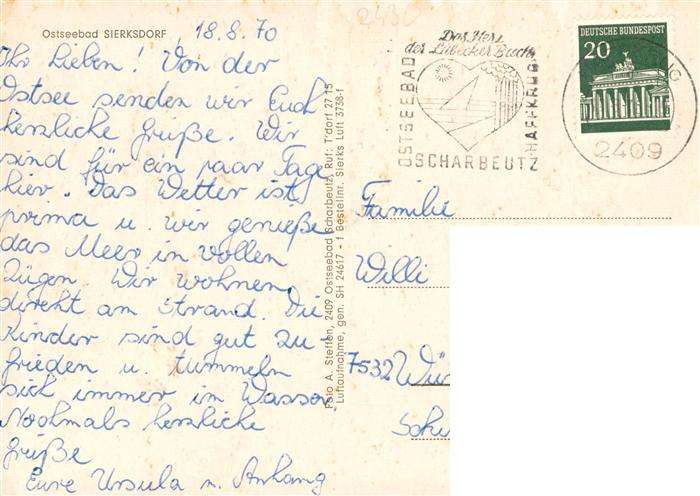 Ostseebad SIERKSDORF
18.8.70
Ihr Lieben! Von der
Ostsee senden wir Euch
herzliche Grüße. Wir
sind für ein paar Tage
hier. Das Wetter ist
prima u. wir genieße
das Meer in vollen
Zügen. Wir wohnen
direkt am Strand. Die
Kinder sind gut zu-
frieden u. tummeln
sich immer im Wasser
Nochmals herzliche
Grüße
Eure Ursula m. Anhang
Foto A. Steffen, 2409 Ostseebad Scharbeutz, Ruf: T'dorf 27 15
Luftaufnahme, gen. SH 24617 - 1 Bestellnr. Sierks Luft 3738-1
243
Das Herz
der Lübecker Bucht
OSTSEEBAD
SCHARBEUTZ
HAFFKRUG
DEUTSCHE BUNDESPOST
20
2409
Familie
Willi
7532 Wü
Sch